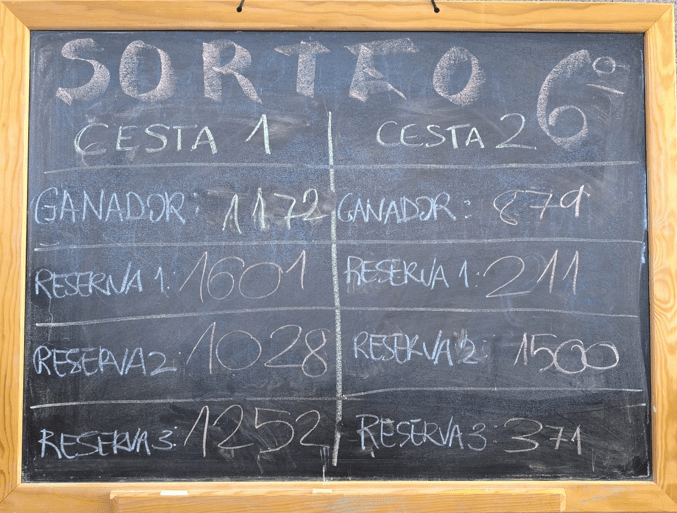 SORTEO 6º
CESTA 1 CESTA 2
GANADOR: 1172 GANADOR: 879
RESERVA 1: 1601 RESERVA 1: 211
RESERVA 2: 1028 RESERVA 2: 1500
RESERVA 3: 1252 RESERVA 3: 371